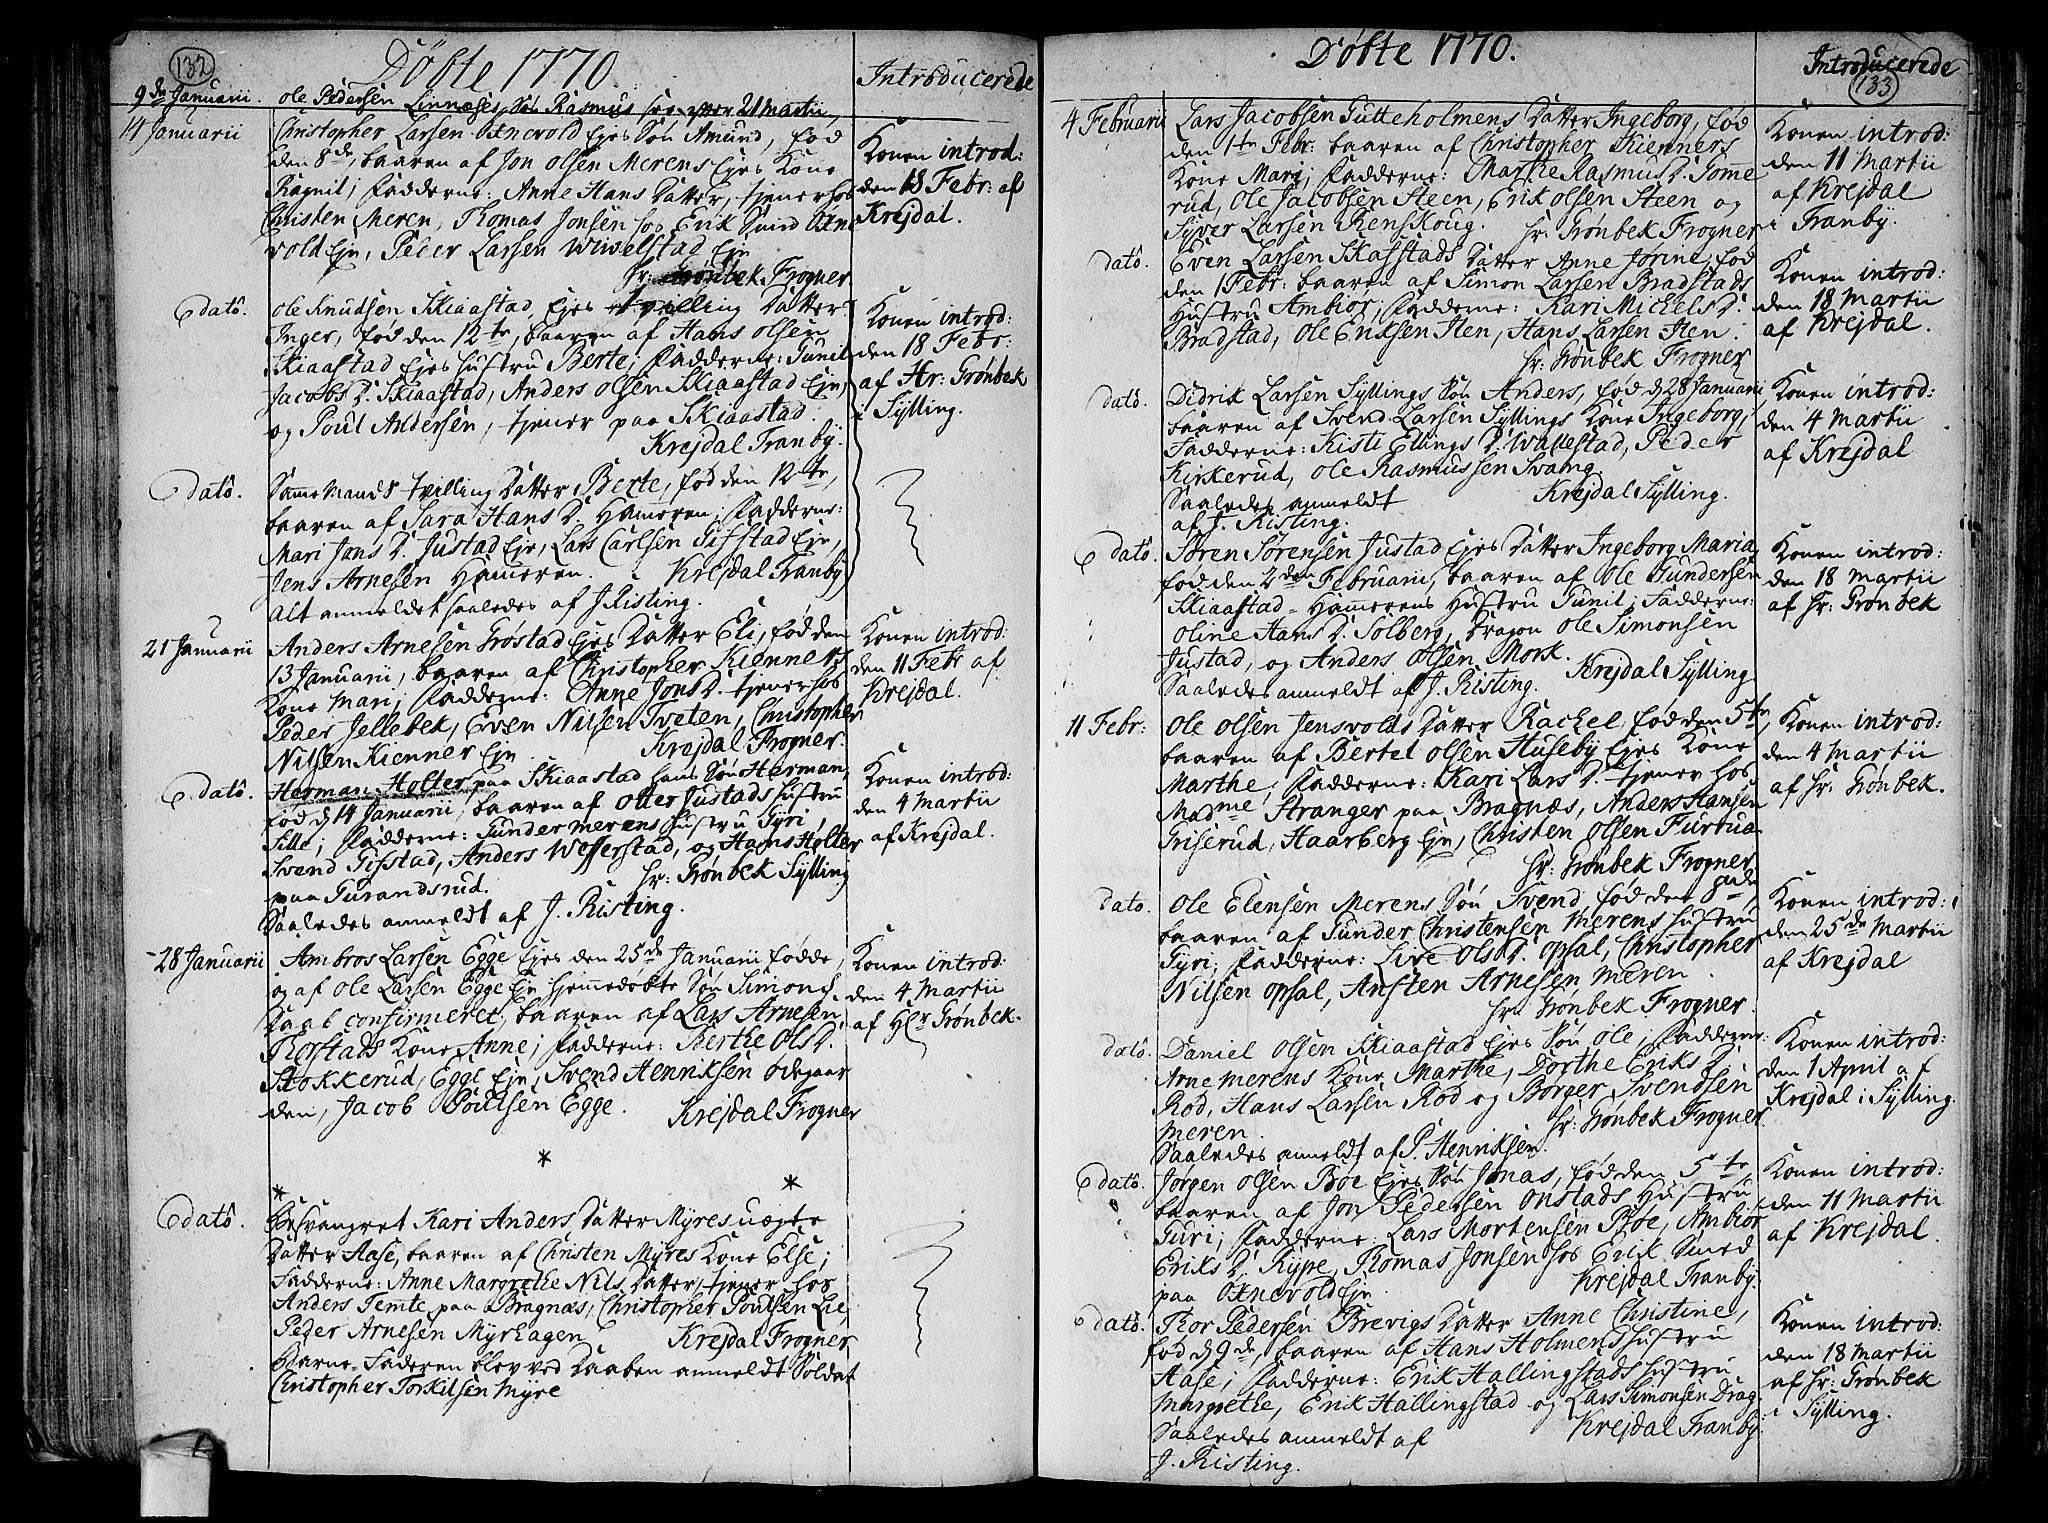 132
Döbte 1770.
Introducerede
9de Januarii. Ole Pedersen Linneses Sön Rasmus see efter 21 Martii,
14 Januarii
Christopher Larsen Oxnevold Ejes Sön Amund, fød
den 8de, baaren af Jon Olsen Merens Ejes Kone
Ragnil; Fadderne: Anne Hans Datter, tjener hos
Christen Meren, Thomas Jonsen hos Erik Smed Oxne
vold Eje, Peder Larsen Wiiselstad Eje
hr: Grönbek Frogner
Konen introd:
den 18 Febr: af
Krejdal.
Edatô.
Ole Knudsen Skiaastad, Ejes tvilling Datter
Inger, fød den 12te, baaren af Hans Olsen
Skiaastad Ejes Hustru Berte; Fadderne: Gunil
Jacobs D. Skiaastad, Anders Olsen Skiaastad Eje,
og Poul Andersen, tjener paa Skiaastad.
Krejdal Tranby.
Konen introd:
den 18 Febr:
af Hr: Grönbek
i Sylling.
Edatô.
Samme Mands tvilling Datter Berte, fød den 12te,
baaren af Sara Hans D. Hameren; Fadderne:
Mari Jans D. Justad Eje, Lars Carlsen Gifstad Eje,
Jens Arnesen Hameren. Krejdal Tranby
Alt anmeldet saaledes af J. Risting.
21 Januarii
Anders Arnesen Gröstad Ejes Datter Eli, fød den
13 Januarii, baaren af Christopher Kienners
Kone Mari; Fadderne: Anne Jons D. tjener hos
Peder Jellebek, Even Nilsen Tveten, Christopher
Nilsen Kienner Eje Krejdal Frogner.
Konen introd:
den 11 Febr af
Krejdal.
Edatô.
Herman Holter paa Skiaastad hans Sön Herman,
fød d 14 Januarii, baaren af Otter Justads Hustru
Sille; Fadderne: Gunder Merens Hustru Gyri,
Svend Gifstad, Anders Wefferstad, og Hans Holter
paa Gurandsrud. hr: Grönbek Sylling
Saaledes anmeldt af J. Risting.
Konen introd:
den 4 Martii
af Krejdal.
28 Januarii
Ambros Larsen Egge Ejes den 25de Januarii födde,
og af Ole Larsen Egge Eje hjemmedöbte Sön Simons
Daab confirmeret, baaren af Lars Arnesen
Rorstads Kone Anne; Fadderne: Berthe Ols D.
Stokkerud, Egge Eje, Svend Henriksen Odegaar
den, Jacob Poulsen Egge. Krejdal Frogner
Konen introd:
den 4 Martii
af Hr Grönbek.
*
* *
Edatô.
Besvangret Kari Anders Datter Myres uægte
Datter Aase, baaren af Christen Myres Kone Else;
Fadderne: Anne Margrethe Nils Datter, tjener hos
Anders Temte paa Bragnæs, Christopher Poulsen Lie,
Peder Arnesen Myrhagen Krejdal Frogner
Barne-Faderen blev ved Daaben anmeldt Soldat
Christopher Torkilsen Myre
133
Döbte 1770.
Introducerede
4 Februarii
Lars Jacobsen Gutteholmens Datter Ingeborg, fød
den 1te Febr: baaren af Christopher Kienners
Kone Mari; Fadderne: Marthe Rasmus D. Tomme
rud, Ole Jacobsen Steen, Erik Olsen Steen og
Syver Larsen Renskoug. hr: Grönbek Frogner
Konen introd:
den 11 Martii
af Krejdal
i Tranby.
datô.
Even Larsen Skafstads Datter Anne Jorine, fød
den 1 Febr: baaren af Simon Larsen Bradstads
Hustru Ambior; Fadderne: Kari Michels D.
Bradstad, Ole Eriksen Sten, Hans Larsen Sten
hr: Grönbek Frogner
Konen introd:
den 18 Martii
af Krejdal.
datô.
Didrik Larsen Syllings Sön Anders, fød d 28 Januarii
baaren af Svend Larsen Syllings Kone Ingeborg,
Fadderne: Kisti Ellings D. Wallestad, Peder
Kirkerud, Ole Rasmussen Svang.
Saaledes anmeldt Krejdal Sylling.
af J. Risting.
Konen introd:
den 4 Martii
af Krejdal
Edatô.
Sören Sörensen Justad Ejes Datter Ingeborg Maria,
fød den 2den Februarii, baaren af Ole Gundersen
Skiaastad-Hammerens Hustru Gunil; Fadderne:
Oline Hans D. Solberg, Dragon Ole Simonsen
Justad, og Anders Olsen Mork.
Saaledes anmeldt af J. Risting. Krejdal Sylling
Konen introd:
den 18 Martii
af hr: Grönbek
11 Febr:
Ole Olsen Jensvolds Datter Rachel, fød den 5te,
baaren af Bertel Olsen Huseby Ejes Kone
Marthe; Fadderne: Kari Lars D. tjener hos
Madme Stranger paa Bragnæs, Anders Hansen
Griserud, Haarberg Eje, Christen Olsen Furua
hr: Grönbek Frogner
Konen introd:
den 4 Martii
af hr: Grönbek.
dato.
Ole Elensen Merens Sön Svend, fød den
baaren af Gunder Christensen Merens Hustru
Gyri; Fadderne: Live Ols D. Opsal, Christopher
Nilsen Opsal, Ansten Arnesen Meren.
hr: Grönbek Frogner.
Konen introd:
den 25de Martii
af Krejdal
datô.
Daniel Olsen Skiaastad Ejes Sön Ole, Fadderne
Arne Merens Kone Marthe, Dorthe Eriks D.
Röd, Hans Larsen Röd og Borger Svendsen
Meren. hr: Grönbek Frogner.
Saaledes anmeldt af P. Henriksen.
Konen introd:
den 1 April af
Krejdal i Sylling.
Edatô.
Jörgen Olsen Böe Ejes Sön Jonas, fød den 5te
baaren af Jon Pedersen Onstads Hustru
Guri; Fadderne: Lars Mortensen Böe, Ambior
Eriks D. Rype, Thomas Jonsen hos Erik Smed
paa Oxnevold Eje. Krejdal Tranby.
Konen introd:
den 11 Martii
af Krejdal.
Edatô.
Thor Pedersen Brevigs Datter Anne Christine,
fød d 9de, baaren af Hans Holmens Hustru
Aase; Fadderne: Erik Hallingstads Hustru
Margrethe, Erik Hallingstad og Lars Simonsen Drag.
Saaledes anmeldt af Krejdal Tranby.
J. Risting.
Konen introd:
den 18 Martii
af hr: Grönbek
i Sylling.